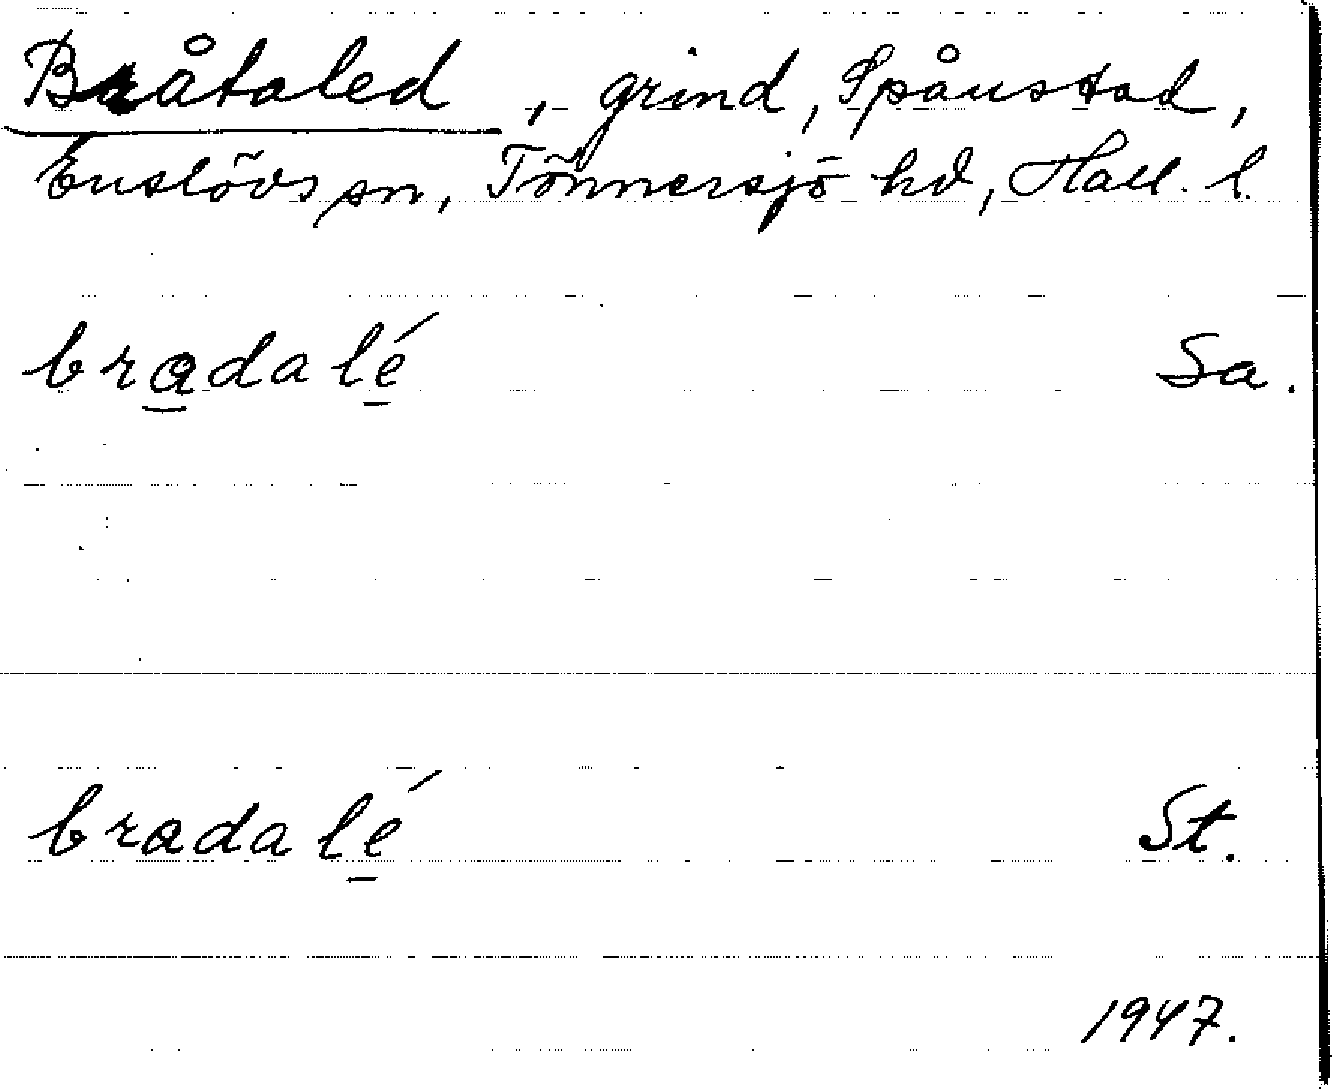 Bråtaled, grind, Spånstad,
Enslövs sn, Tönnersjö hd, Hall. l.
bradalé Sa.
bradalé St.
1947.